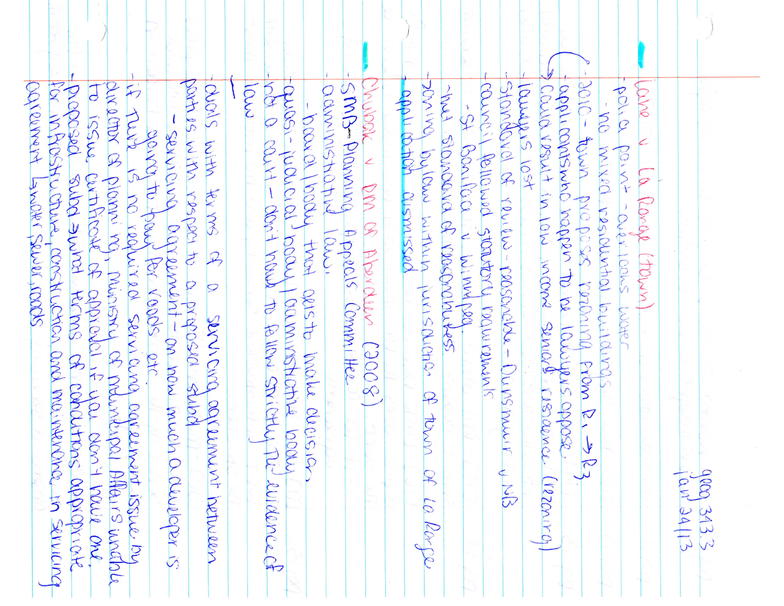 geog 313.3
Jan 24/13
Lane v La Ronge (town)
- paid a point - over looks water
- no mixed residential buildings
- 2010 - town proposes rezoning from R1 → R3
- applicants who happen to be lawyers oppose
↳ could result in low income seniors residence (rezoning)
- lawyers lost
- standard of review - reasonable - Dunsmuir v NB
- council followed statutory requirements
- St Boniface v Winnipeg
- the standard of reasonableness
- zoning bylaw within jurisdiction of town of La Ronge
- application dismissed
Chubak v RM of Aberdeen (2008)
- SMB - Planning Appeals Committee
- administrative law
- board/body that gets to make decision
- quasi-judicial body/administrative body
- not a court - don't have to follow strictly the evidence of
law
- deals with terms of a servicing agreement between
parties with respect to a proposed subd
- servicing agreement - on how much a developer is
going to pay for roads etc.
- if there is no required servicing agreement issue by
director of planning, ministry of municipal Affairs unable
to issue certificate of approval if you don't have one
- proposed subd → what terms of conditions appropriate
for infrastructure, construction and maintenance in servicing
agreement ↳ water, sewer, roads